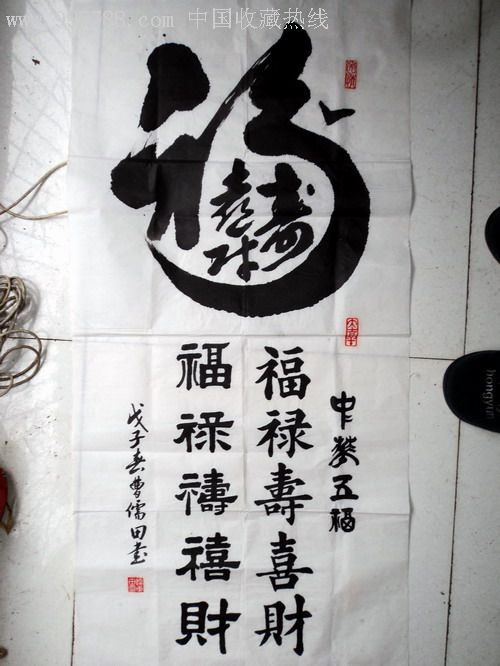 中国收藏热线
福
壽喜财
中华五福
福禄壽喜財
福禄禱禧財
戊子春曹儒田书
hongyun